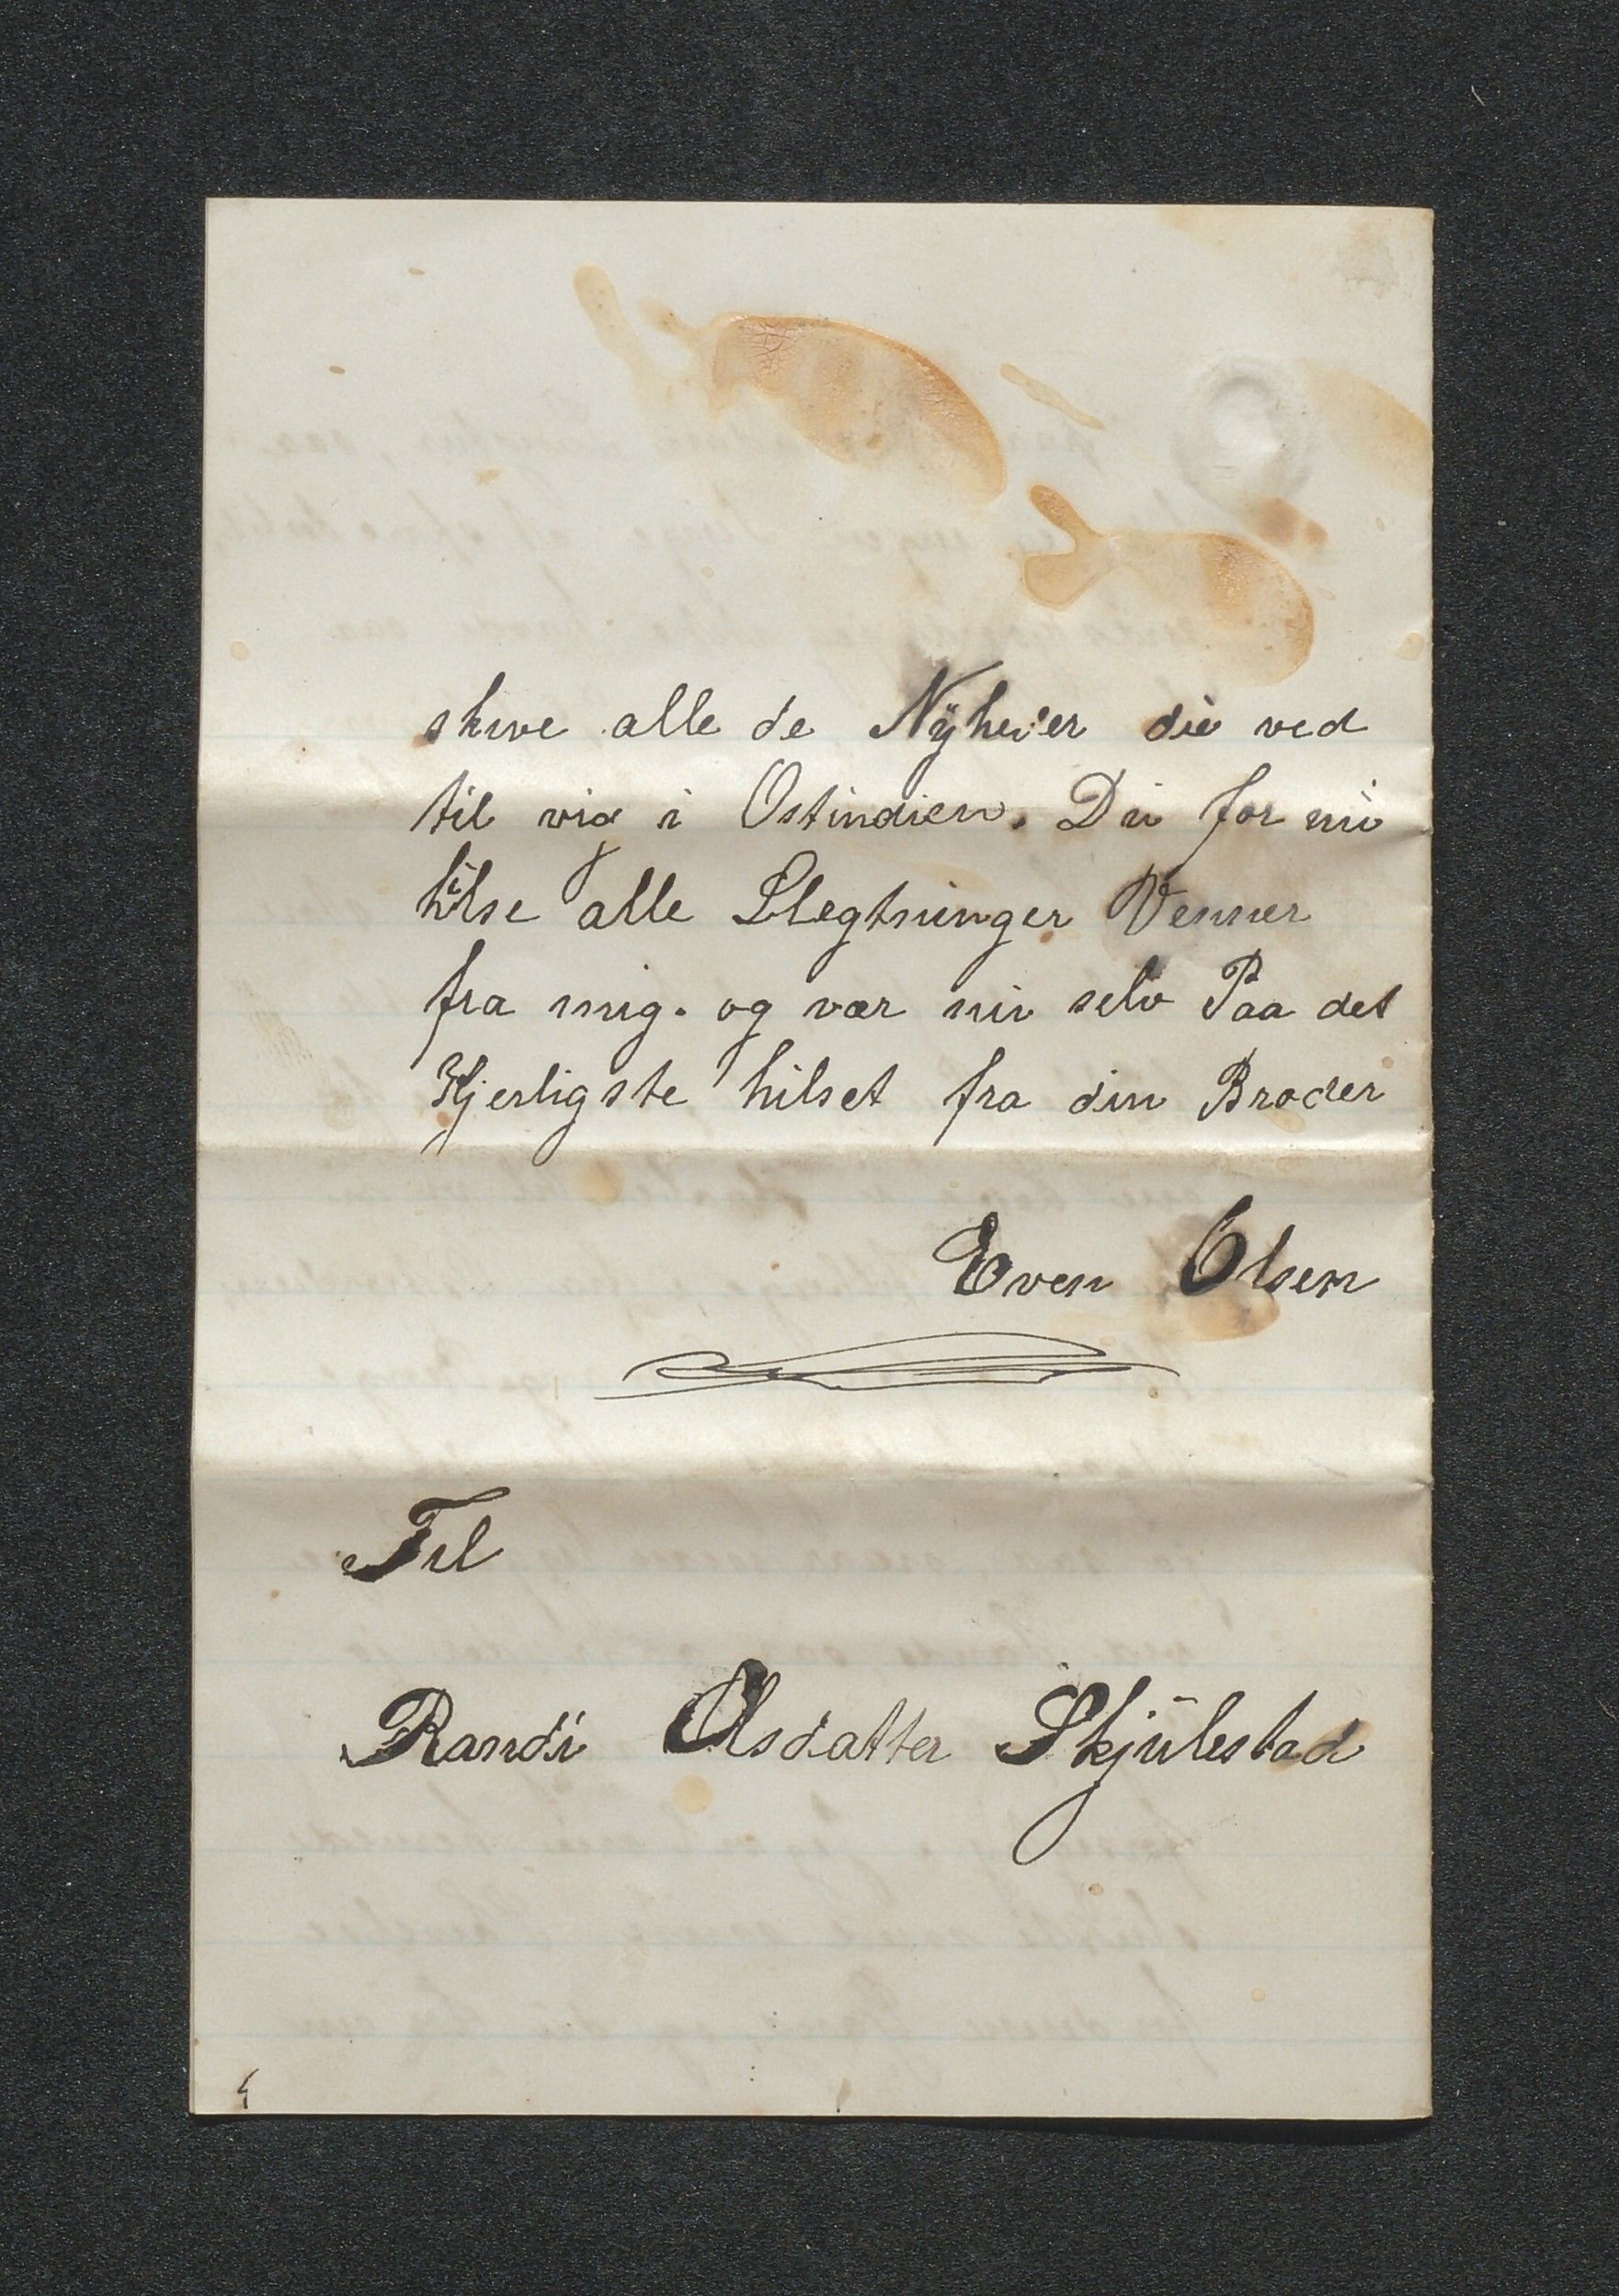 skive alle de Nÿheder du ved
til vis i Ostindien. Du for nu
hilse alle Slegtninger Venner
fra mig. og vær nu selv Paa det
Kjerligste hilset fra din Broder
Even Olsen
Til
Randi Olsdatter Skjúlestad